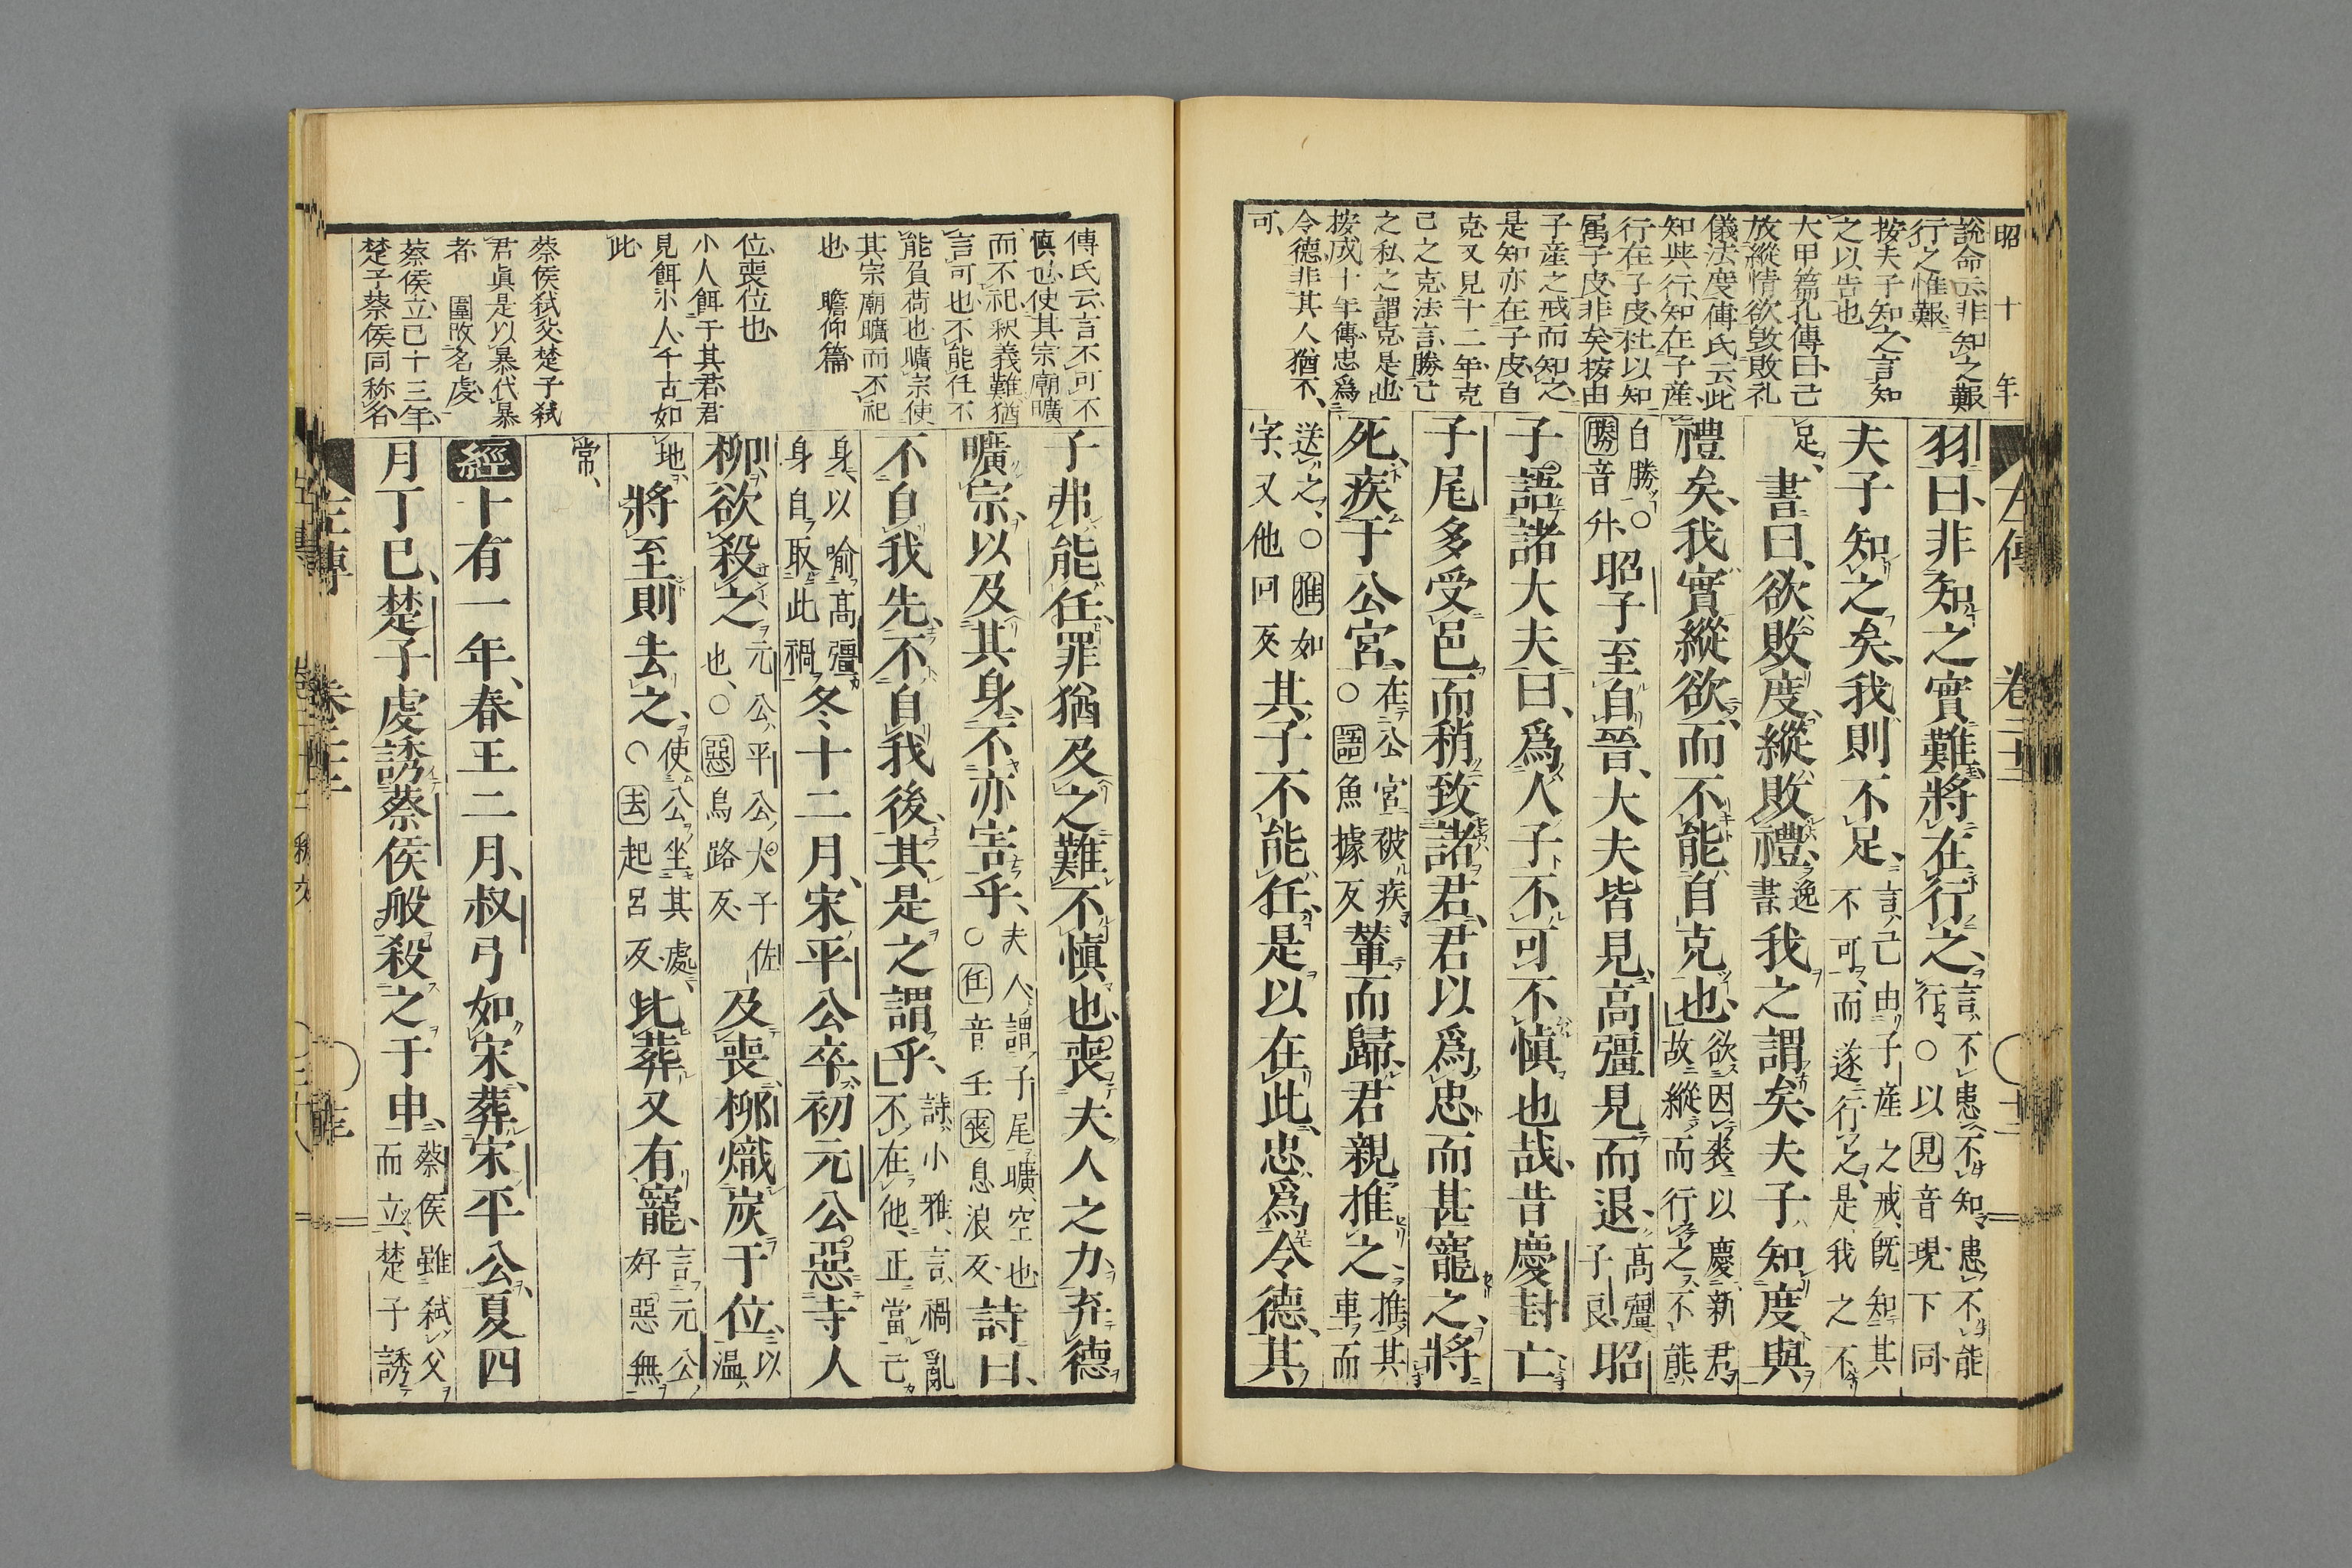 昭十年
左傳
說命云非知之艱
行之惟艱
按夫子知之言知
之以告也
大甲篇孔傳曰己
放縱情欲毀敗礼
儀法度傅氏云此
知與行知在子產
行在子皮杜以知
属子皮非矣按由
子產之戒而知之
是知亦在子皮自
克又見十二年克
己之克法言勝己
之私之謂克是也
按成十年傳忠爲
令德非其人猶不
可
羽曰、非知之實難、將在行之、言不患不知、患不能行、○以見音現下同
夫子知之矣、我則不足、言己由子產之戒、既知其不可、而遂行之、是我之不
足、書曰、欲敗度、縱敗禮、逸書、我之謂矣、夫子知度與
禮矣、我實縱欲、而不能自克也、欲因喪以慶新君、故縱而行之、不能
自勝○勝音升、昭子至自晉、大夫皆見、高彊見而退、高彊、子良、昭
子語諸大夫曰、爲人子不可不慎也哉、昔慶封亡
子尾多受邑、而稍致諸君、君以爲忠、而甚寵之、將
死、疾于公宮、在公宮被疾○語魚據反、輦而歸、君親推之、推其車而
送之、○推如字、又他回反、其子不能任、是以在此、忠爲令德、其
傅氏云言不可不
慎也使其宗廟曠
而不祀釈義難猶
言可也不能任不
能負荷也曠宗使
其宗廟曠而不祀
也　瞻仰篇
位喪位也
小人餌于其君君
見餌小人千古如
此
蔡侯弑父楚子弑
君眞是以暴代暴
者　圍改名虔
蔡侯立已十三年
楚子蔡侯同称名
子弗能任、罪猶及之、難不慎也、喪夫人之力、弃德
曠宗、以及其身、不亦害乎、夫人、謂子尾、曠、空也○任音壬喪息浪反、詩曰、
不自我先、不自我後、其是之謂乎、詩小雅、言禍亂不在他、正當己
身、以喻高彊身自取此禍、冬十二月、宋平公卒、初元公惡寺人
柳、欲殺之、元公、平公大子佐也、○惡烏路反、及喪、柳熾炭于位、以溫
地、將至則去之、使公坐其處、○去起呂反、比葬又有寵、言元公好惡無
常、
經十有一年、春王二月、叔弓如宋、葬宋平公、夏四
月丁巳、楚子虔誘蔡侯般、殺之于申、蔡侯雖弑父而立、楚子誘